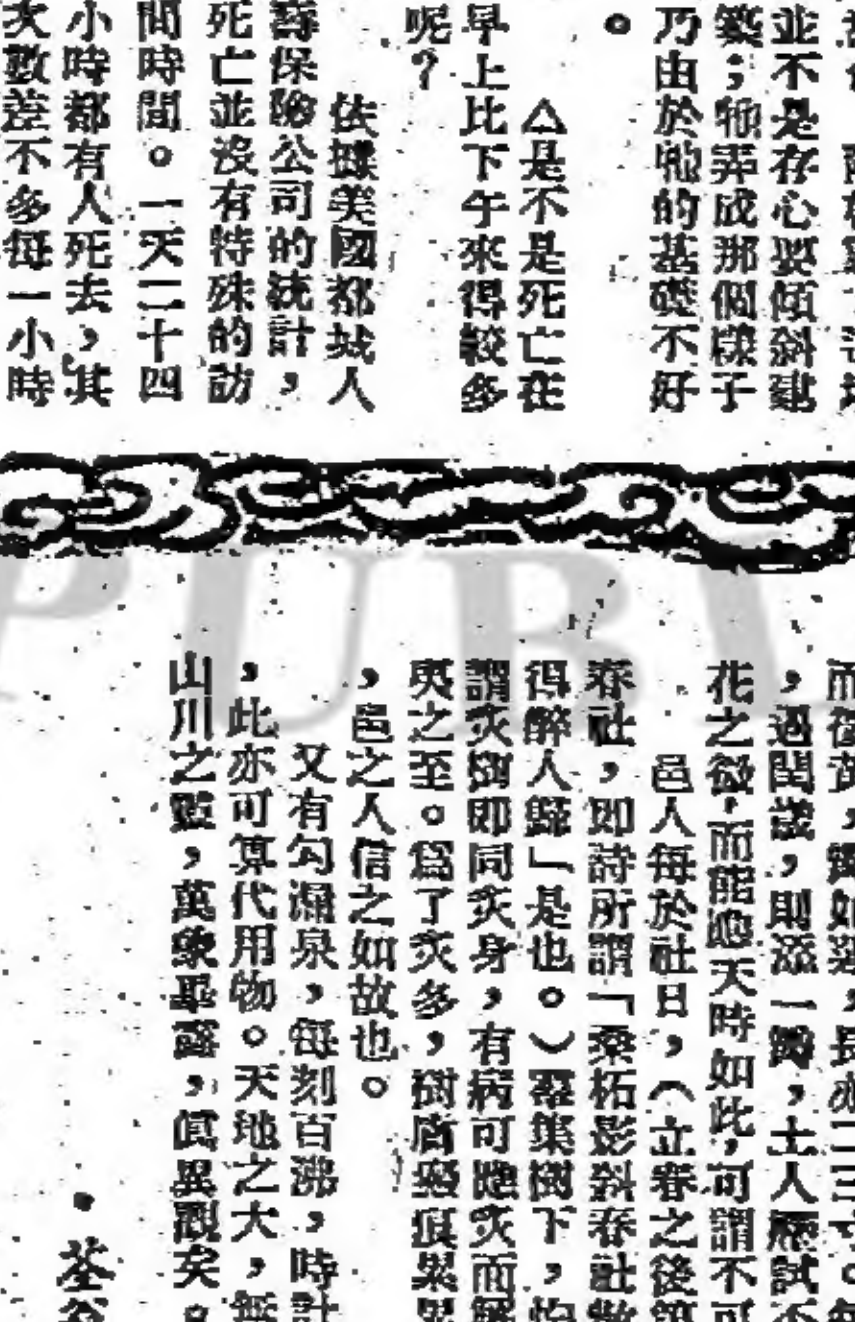 並不是存心要傾斜建
築；牠弄成那個樣子
乃由於牠的基礎不好
。
△是不是死亡在
早上比下午來得較多
呢？
依據美國都城人
壽保險公司的統計，
死亡並沒有特殊的訪
問時間。一天二十四
小時都有人死去，其
次數差不多每一小時
，遇閏歲，則添一瓣，土人屢試不
花之微，而能應天時如此，可謂不可
邑人每於社日，（立春之後第
春社，即詩所謂「桑柘影斜春社散
得醉人歸」是也。）羣集樹下，
謂灸樹即同灸身，有病可應灸而
夷之至。爲了灸多，樹膚瘢痕累累
，邑之人信之如故也。
又有勾漏泉，每刻百沸，時計
，此亦可算代用物。天地之大，無
山川之藍，萬象畢露，眞異觀矣。
PUBL